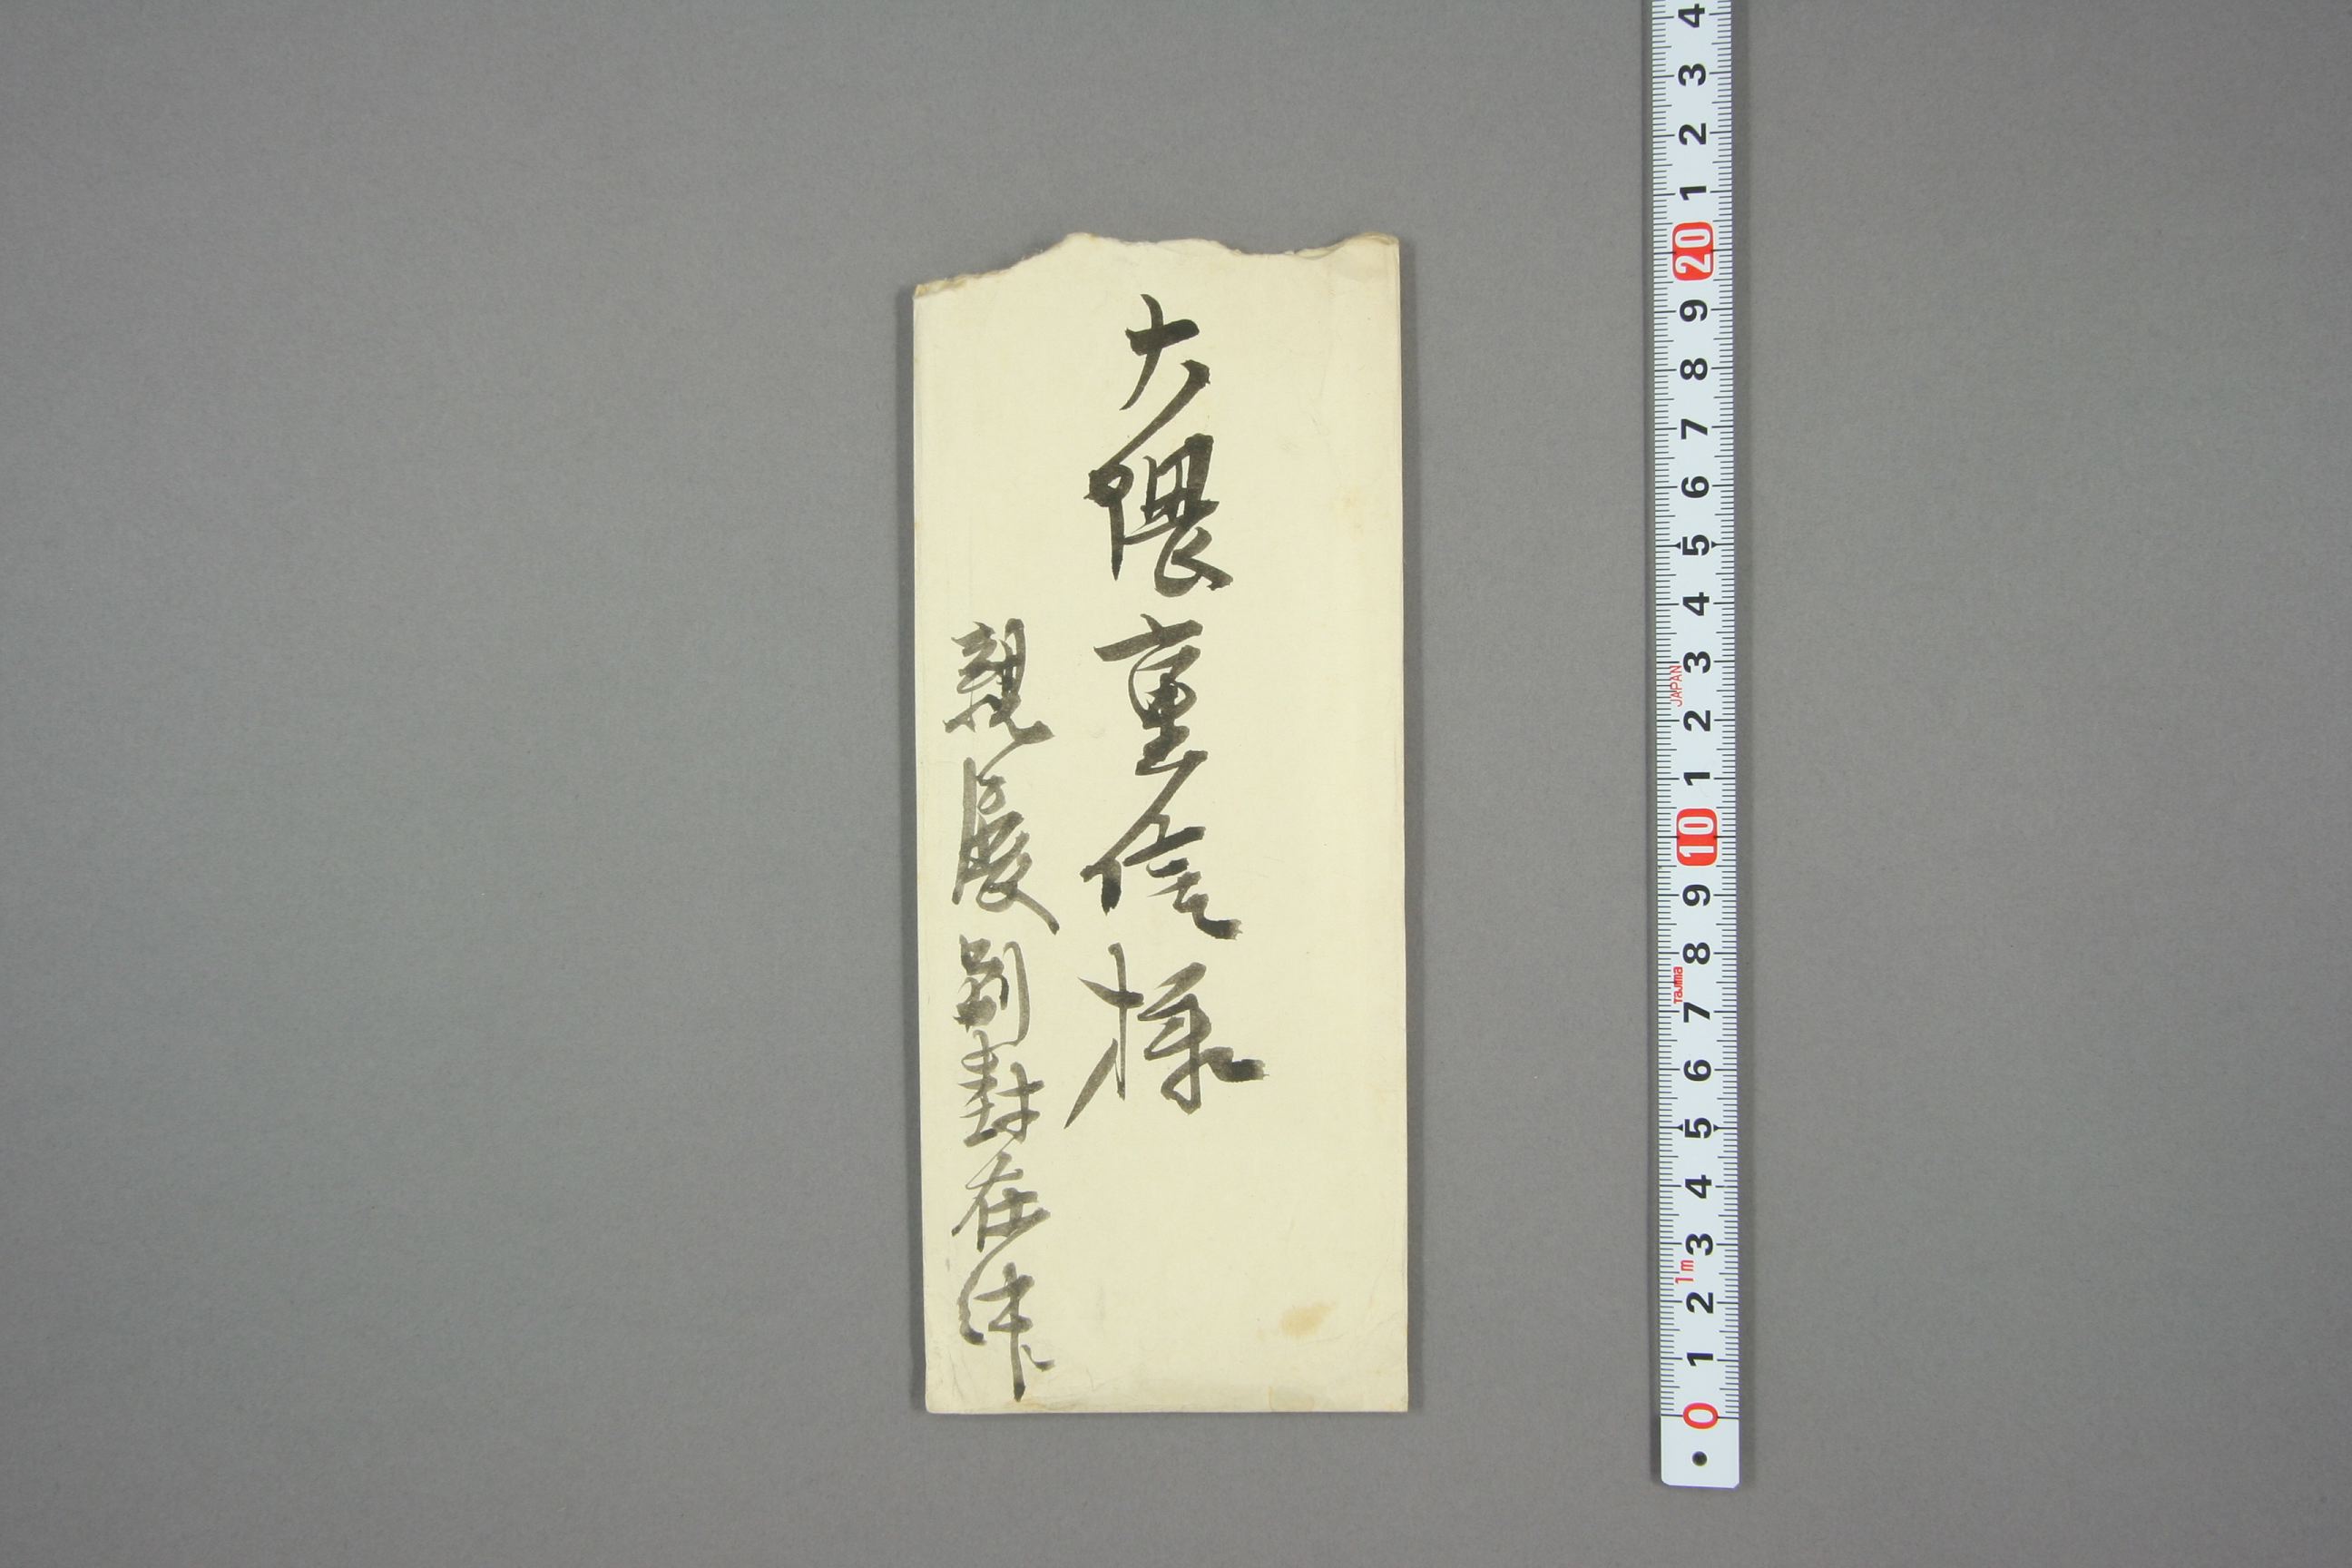 大隈重信様
親展 別封在中
4
3
2
1
20
9
8
7
6
5
4
3
JAPAN
2
1
10
9
8
Tajima
7
6
5
4
3
1m
2
1
0